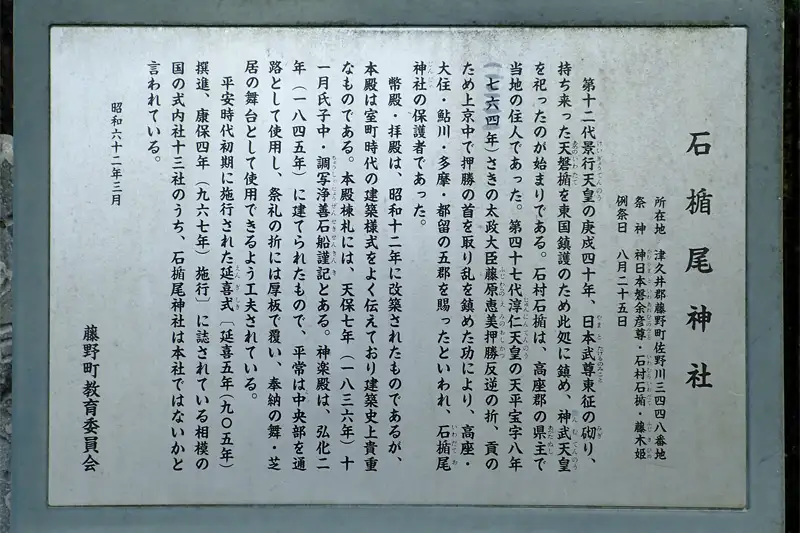 石楯尾神社
所在地　津久井郡藤野町佐野川三四四八番地
祭　神　神日本磐余彦尊・石村石楯・藤木姫
例祭日　八月二十五日
第十二代景行天皇の庚戌四十年、日本武尊東征の砌り、
持ち来った天磐楯を東国鎮護のため此処に鎮め、神武天皇
を祀ったのが始まりである。石村石楯は、高座郡の県主で
当地の住人であった。第四十七代淳仁天皇の天平宝字八年
（七六四年）さきの太政大臣藤原恵美押勝反逆の折、貢の
ため上京中で押勝の首を取り乱を鎮めた功により、高座・
大住・鮎川・多摩・都留の五郡を賜ったといわれ、石楯尾
神社の保護者であった。
幣殿・拝殿は、昭和十二年に改築されたものであるが、
本殿は室町時代の建築様式をよく伝えており建築史上貴重
なものである。本殿棟札には、天保七年（一八三六年）十
一月氏子中・調写浄善石船謹記とある。神楽殿は、弘化二
年（一八四五年）に建てられたもので、平常は中央部を通
路として使用し、祭礼の折には厚板で覆い、奉納の舞・芝
居の舞台として使用できるよう工夫されている。
平安時代初期に施行された延喜式〔延喜五年（九〇五年）
撰進、康保四年（九六七年）施行〕に誌されている相模の
国の式内社十三社のうち、石楯尾神社は本社ではないかと
言われている。
昭和六十二年三月
藤野町教育委員会